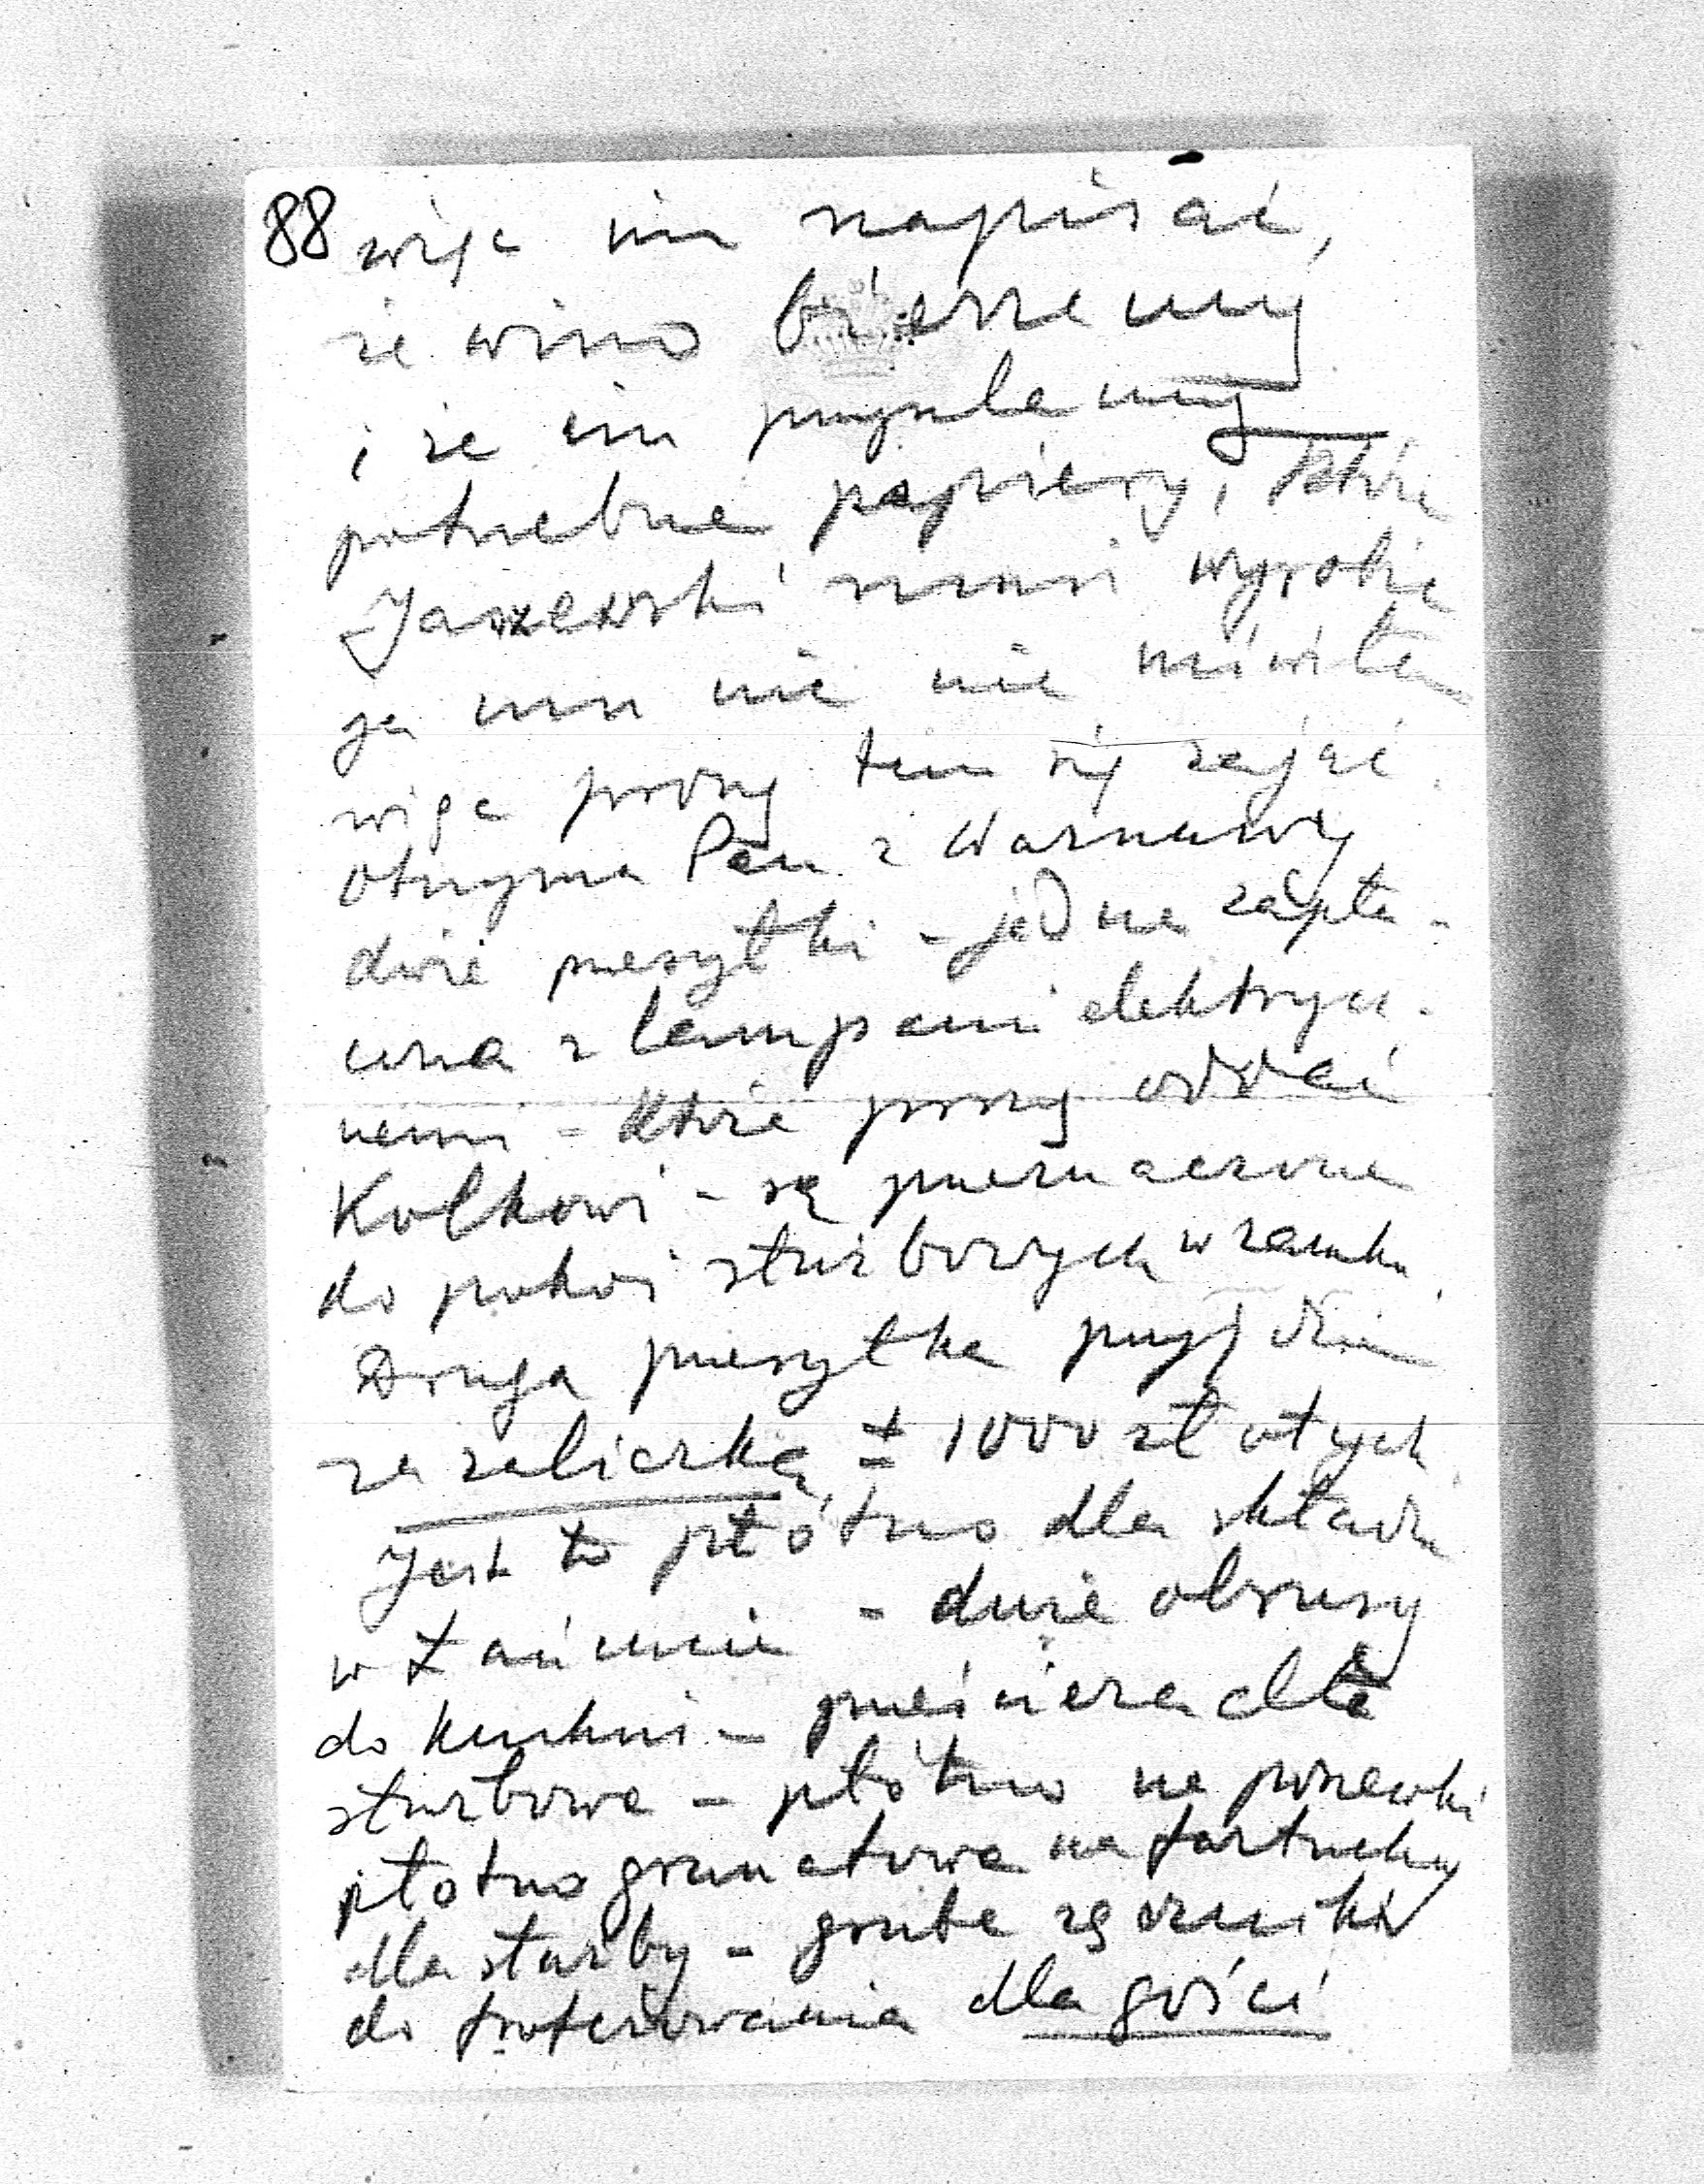 88 więc im napisać,
że wino bierzemy
i że im przyślemy
potrzebne papiery, które
Jaszewski musi wyrobić
ja mu nic nie mówiłem
więc proszę tem się zająć.
Otrzyma Pan z Warszawy
dwie przesyłki – jedna zapła-
cona z lampami elektrycz-
nemi – które proszę oddać
Kolkowi – są przeznaczone
do pokoi służbowych w zamku
Druga przesyłka przyjdzie
za zaliczką ± 1000 złotych
Jest to płótno dla składu
w Łańcucie – dwie obrusy
do kuchni – prześcieradła
służbowe – płótno na poszewki
płótno granatowe na fartuchy
dla służby – grube ręczniki
do froterowania dla gości